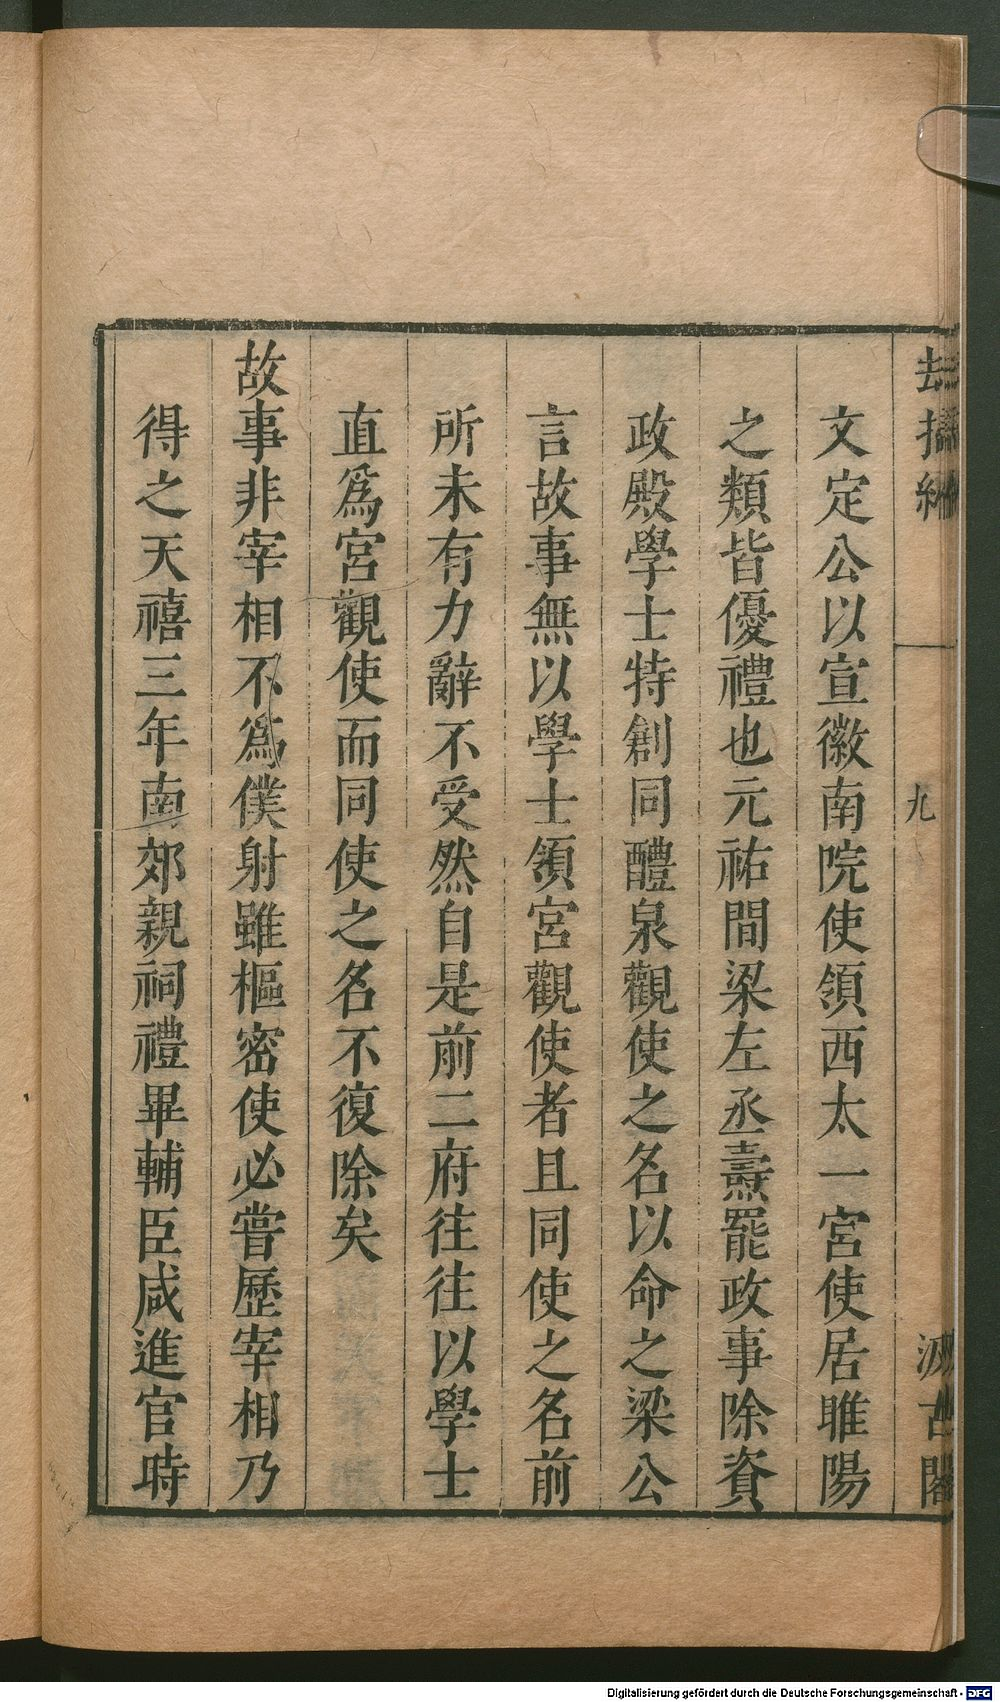 文定公以宣徽南院使領西太一宮使居睢陽
之類皆優禮也元祐間梁左丞燾罷政事除資
政殿學士特創同醴泉觀使之名以命之梁公
言故事無以學士領宮觀使者且同使之名前
所未有力辭不受然自是前二府往往以學士
直爲宮觀使而同使之名不復除矣
故事非宰相不爲僕射雖樞密使必嘗歷宰相乃
得之天禧三年南郊親祠禮畢輔臣咸進官時
九
Digitalisierung gefördert durch die Deutsche Forschungsgemeinschaft - DFG